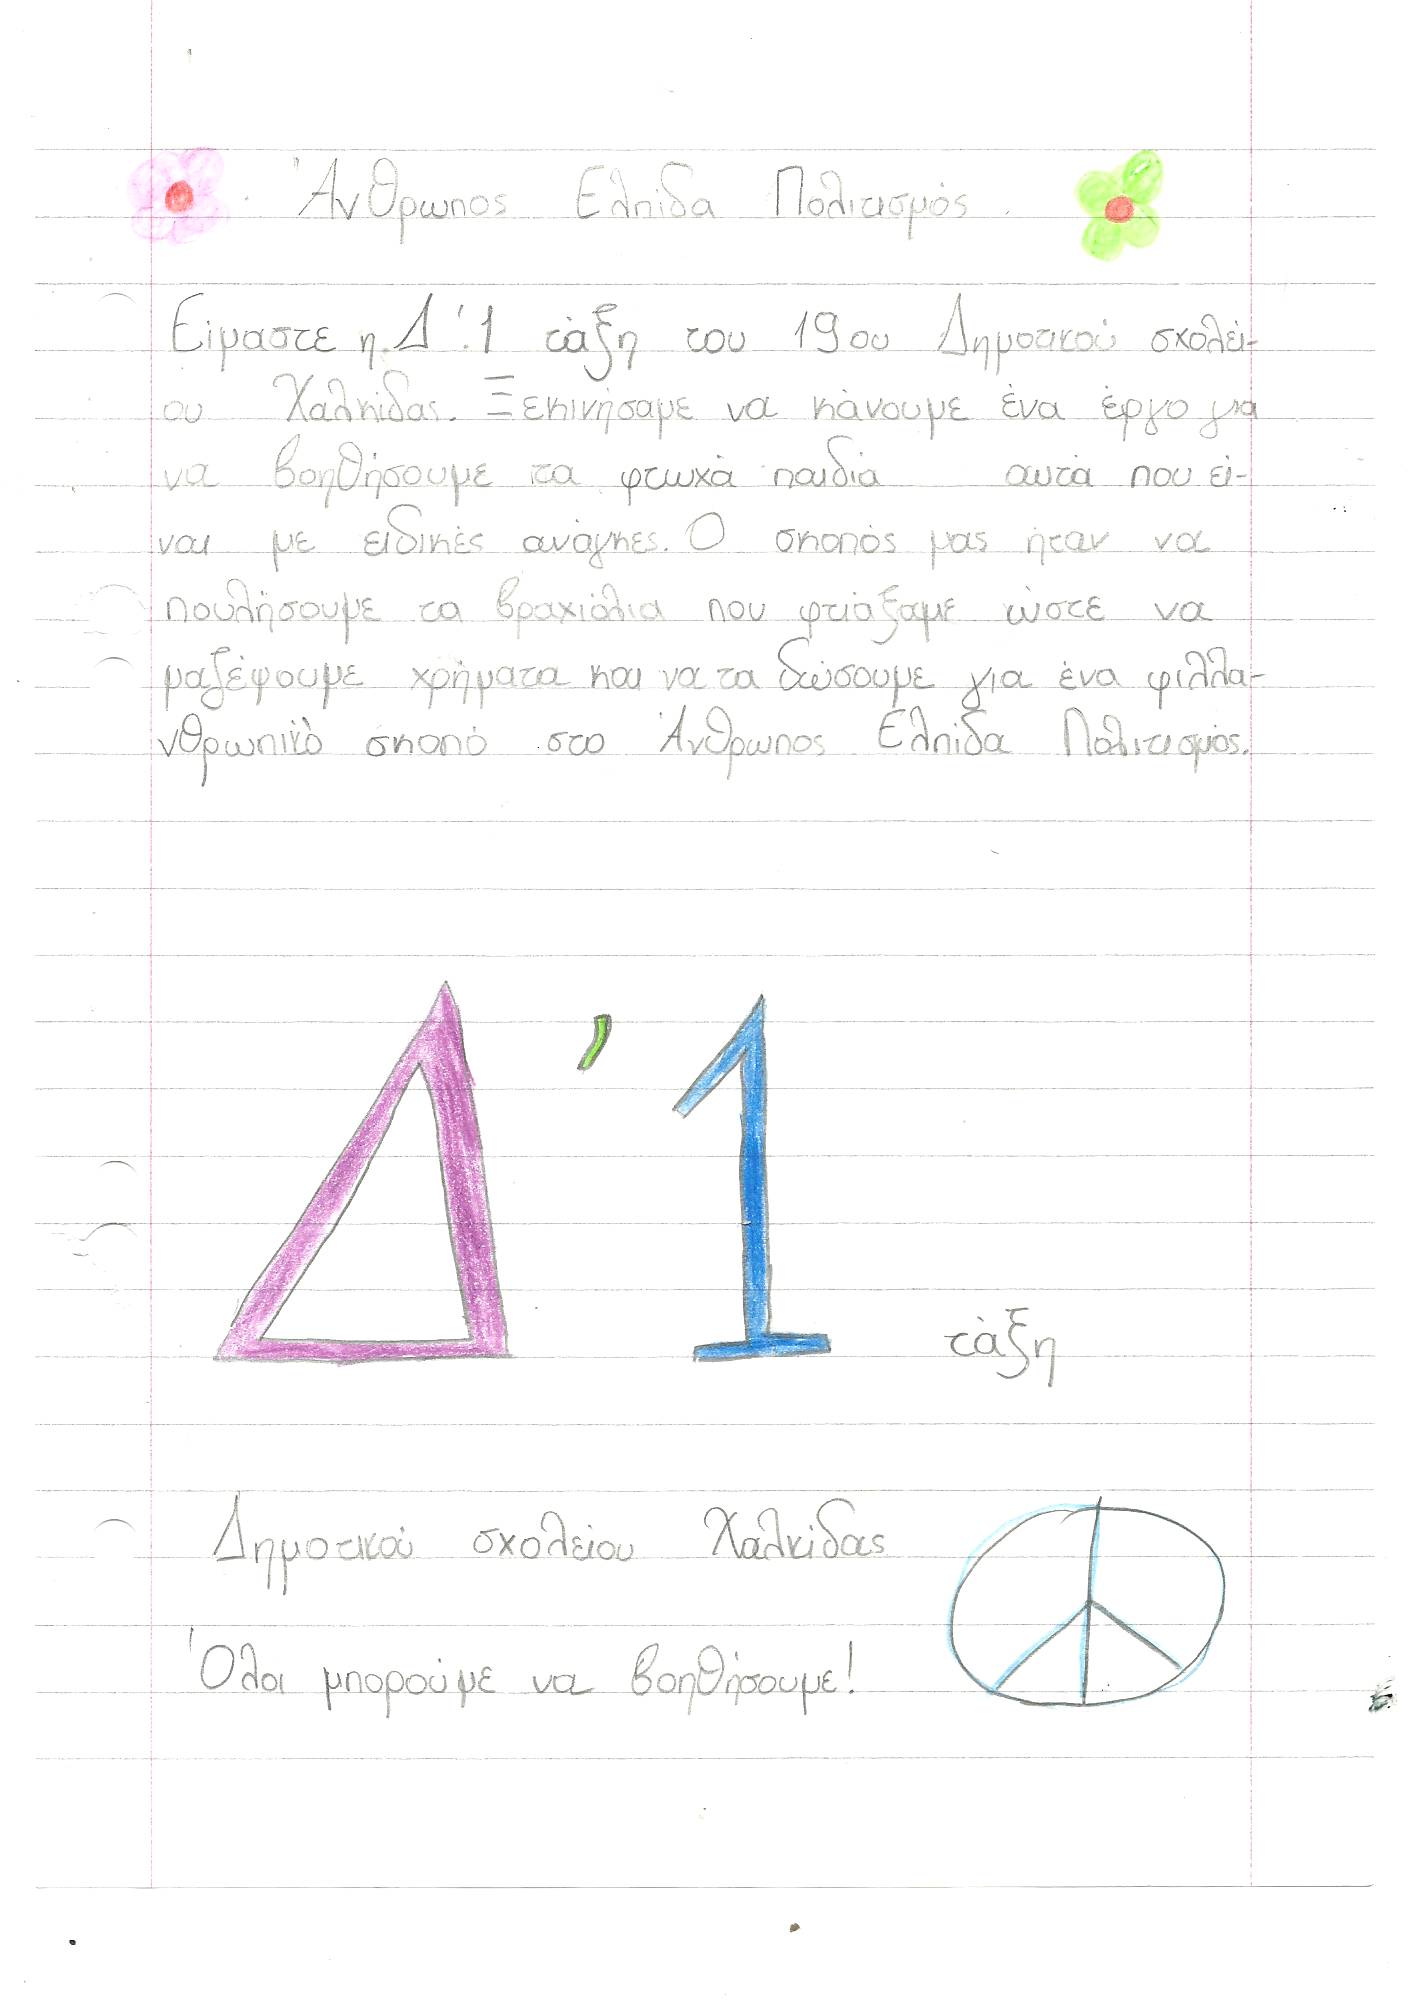 Άνθρωπος Ελπίδα Πολιτισμός.
Είμαστε η Δ'1 τάξη του 19ου Δημοτικού σχολεί-
ου Χαλκίδας. Ξεκινήσαμε να κάνουμε ένα έργο για
να βοηθήσουμε τα φτωχά παιδιά αυτά που εί-
ναι με ειδικές ανάγκες. Ο σκοπός μας ήταν να
πουλήσουμε τα βραχιόλια που φτιάξαμε ώστε να
μαζέψουμε χρήματα και να τα δώσουμε για ένα φιλλα-
νθρωπικό σκοπό στο Άνθρωπος Ελπίδα Πολιτισμός.
Δ'1 τάξη
Δημοτικού σχολείου Χαλκίδας
Όλοι μπορούμε να βοηθήσουμε!